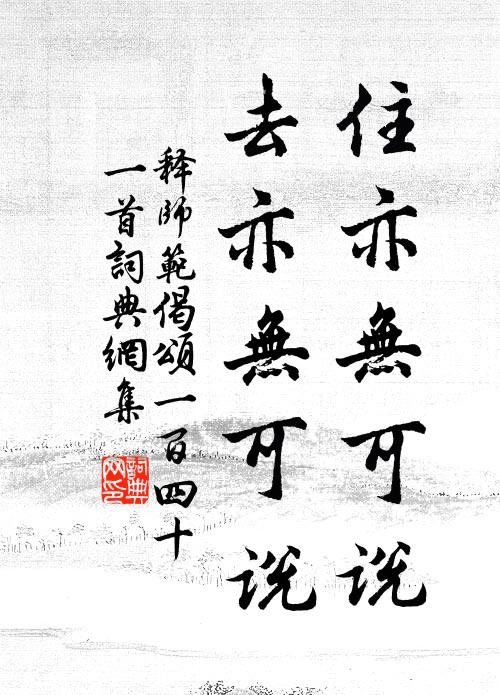 住亦無可说
去亦無可说
释師範偈頌一百四十
一首詞典網集
詞典网印